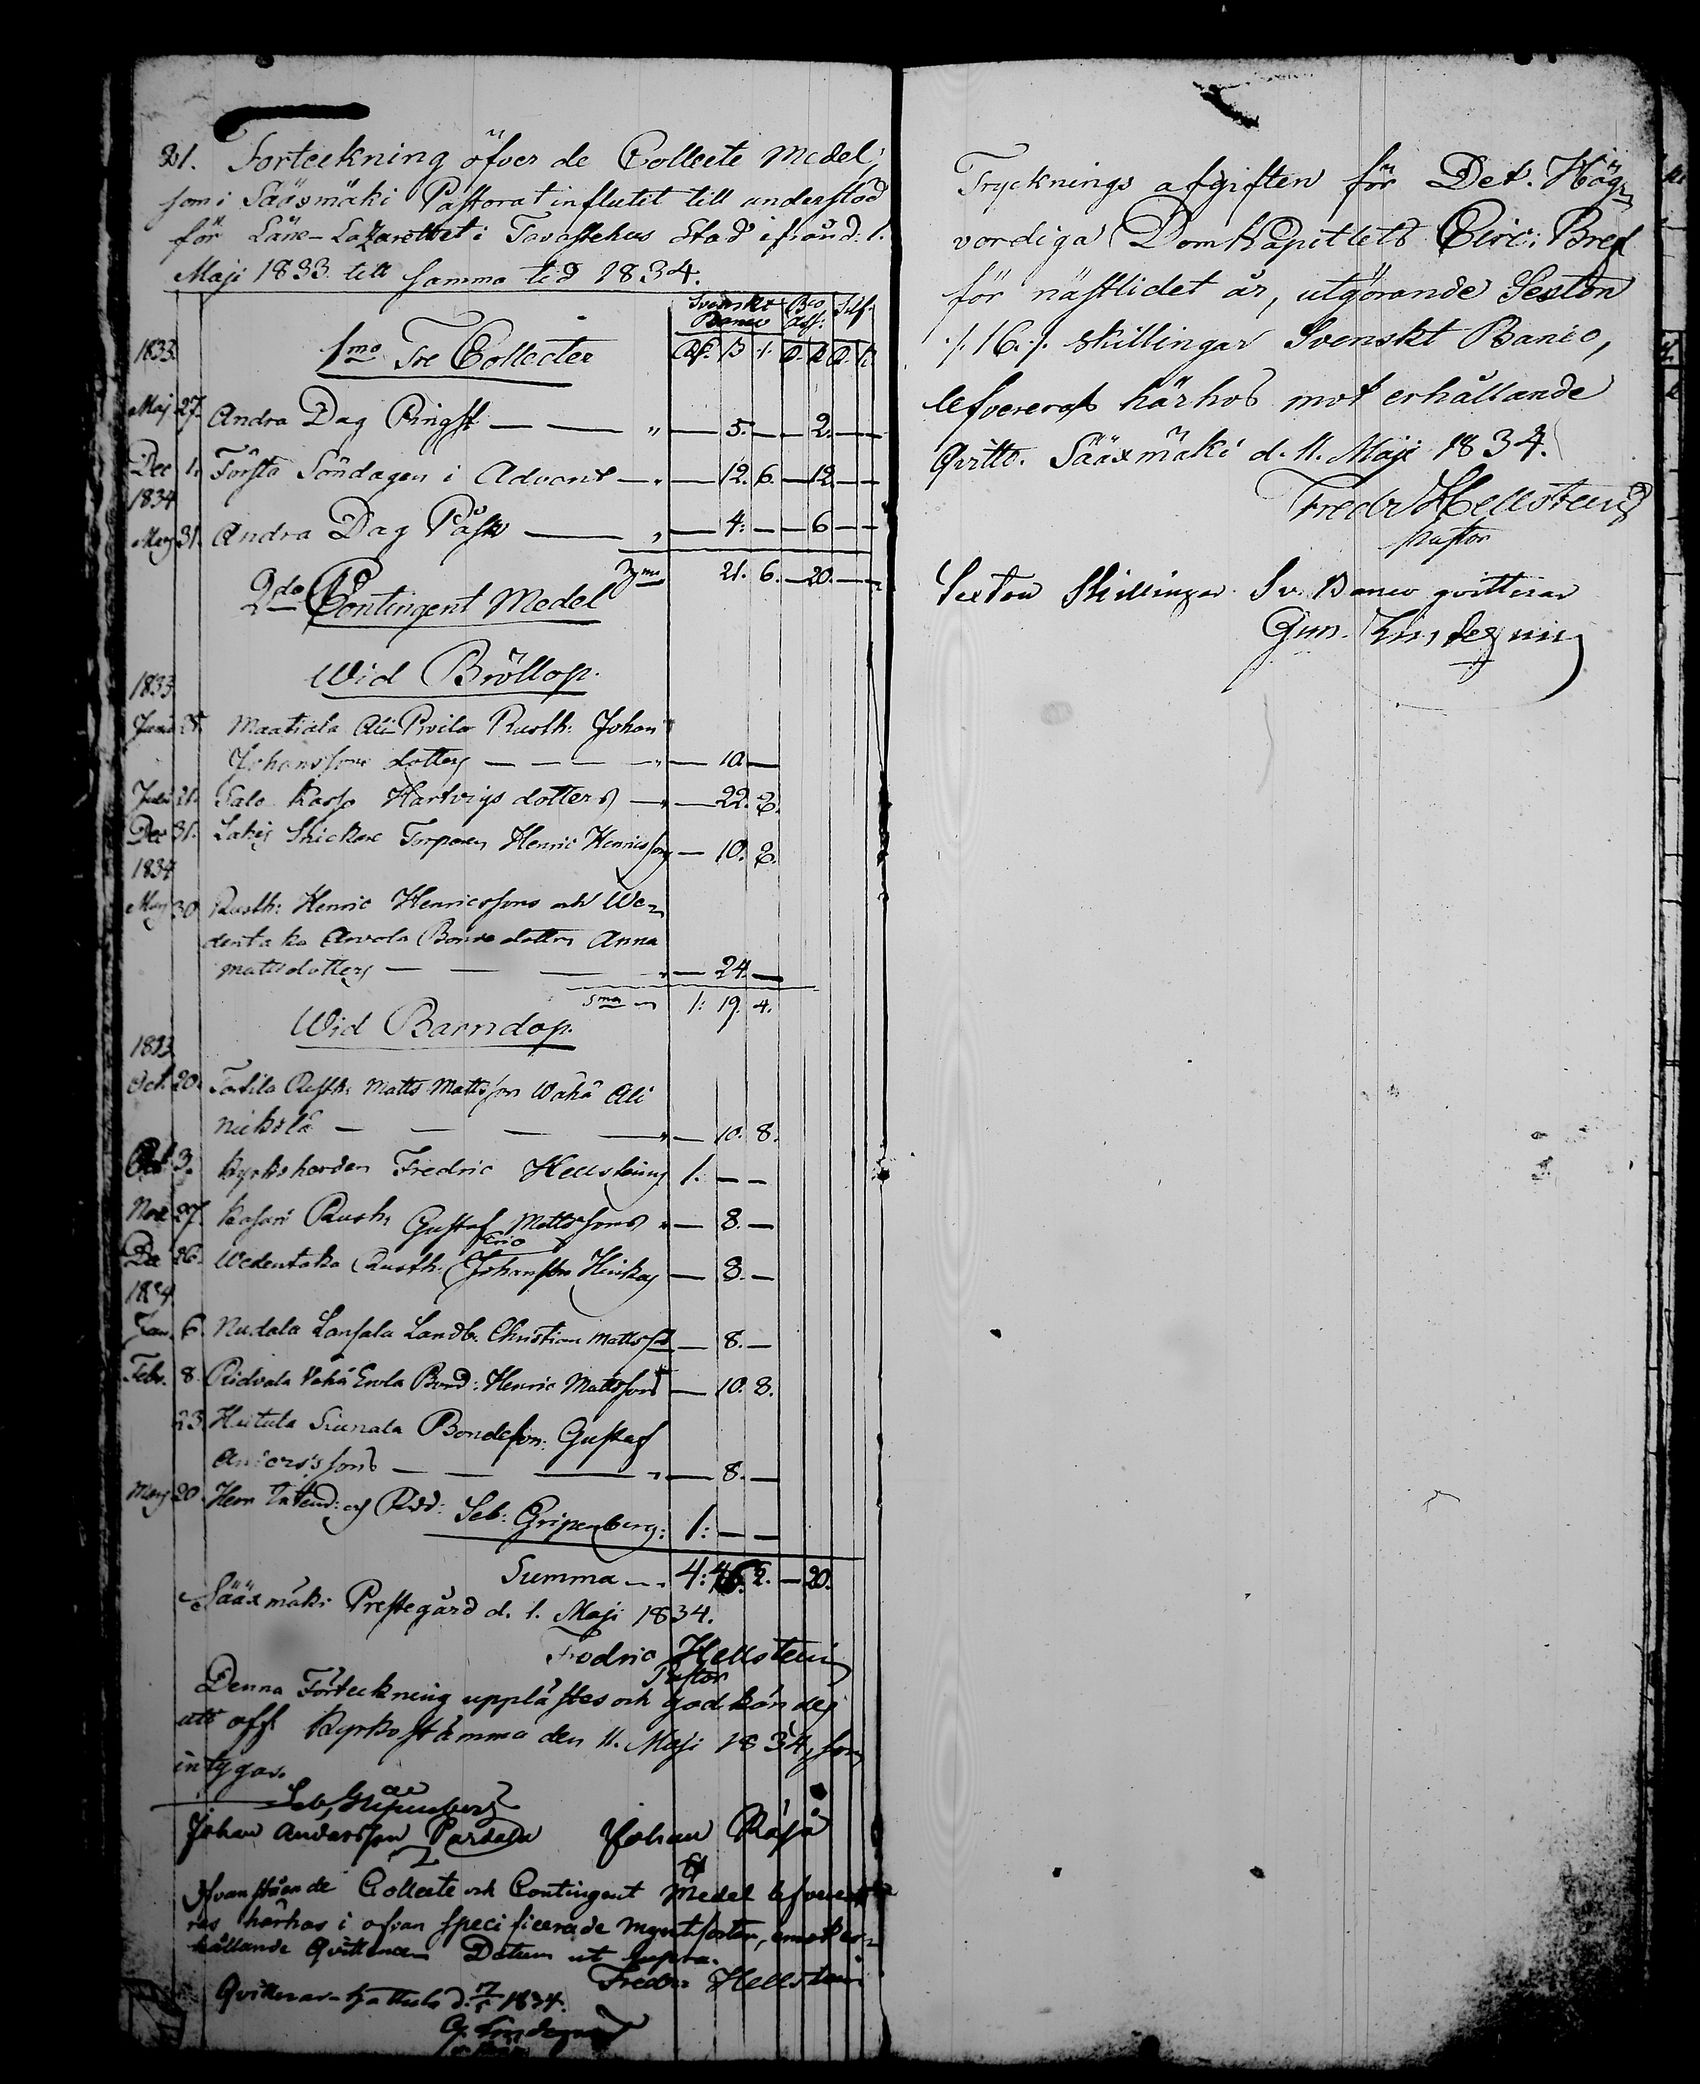 21. Forteckning öfver de Collecte Medel,
som i Sääxmäki Pastorat influtit till understöd
för Läns-Lazarettet i Tavastehus Stad ifrån d. 1.
Maji 1833 till samma tid 1834.
Svenskt Banco Bco Ass: Silf.
1833. 1mo Tre Collecter
Maj 27. Andra Dag Pingst — — " — 5. — — 2. — —
Dec 1. Första Söndagen i Advent — " — 12. 6. — 12. — —
1834
Mars 31. Andra Dag Påsk — " — 4. — — 6 — —
Sma 21. 6. — 20. — —
2do Contingent Medel
Wid Bröllop.
1833
Maatiala Ali Rusth: Johan
Johanssons dotter — — — " — 10. —
21. Talo Hartvigs dotters — " — 22. 8.
Dec 31. Torparen Henric Henricsson — 10. 8.
1834
Mars 30 Rusth: Henric Henricssons och We-
dentaka Bonde dotter Anna
Matts dotter — — — " — 24. —
Sma 1: 19. 4.
Wid Barndop.
1833
Oct. 20. Rusth: Matts Mattsson Wähä Ali
— — — " — 10. 8.
3. Kyrkoherden Fredric Hellstein 1. — —
Nov 27. Rusth: Gustaf Mattssons " — 8. —
Eric
Dec 26. Wedentaka Rusth: Johansson — 8. —
1834
Jan. 6. Landb. Christian Mattss — 8. —
Febr. 8. Ridvala Vähä Bond: Henric Mattssons — 10. 8.
23. Bondeson: Gustaf
Anderssons — — — " — 8. —
Mars 20. Herr Intend: och Ridd: Seb: Gripenberg: 1: — —
Summa — 4: 46. 2. — 20.
Sääxmäki Prestegård d. 1. Maji 1834.
Fredric Hellstein
Pastor
Denna Förteckning upplästes och godkändes
uti off. Kyrkostämma den 11. Maji 1834, som
intygar.
Seb Gripenberg
Johan Andersson Johan
Ofvanstående Collecte och Contingent Medel levere-
ras härhos i ofvan specificerade myntsorter, emot er-
hållande Qvittence. Datum ut supra.
Fredr Hellstein
Qvitterar Hattula d. 1834.
Trycknings afgiften för Det. Hög-
vordiga DomKapitlets Circ: Bref
för nästlidet år, utgörande Sexton
./. 16. ./. skillingar Svenskt Banco,
lefvereras härhos mot erhållande
Qvitto. Sääxmäki d. 11. Maji 1834.
Fredr Hellstein
Pastor
Sexton Skillingar Sv. Banco qvitterar